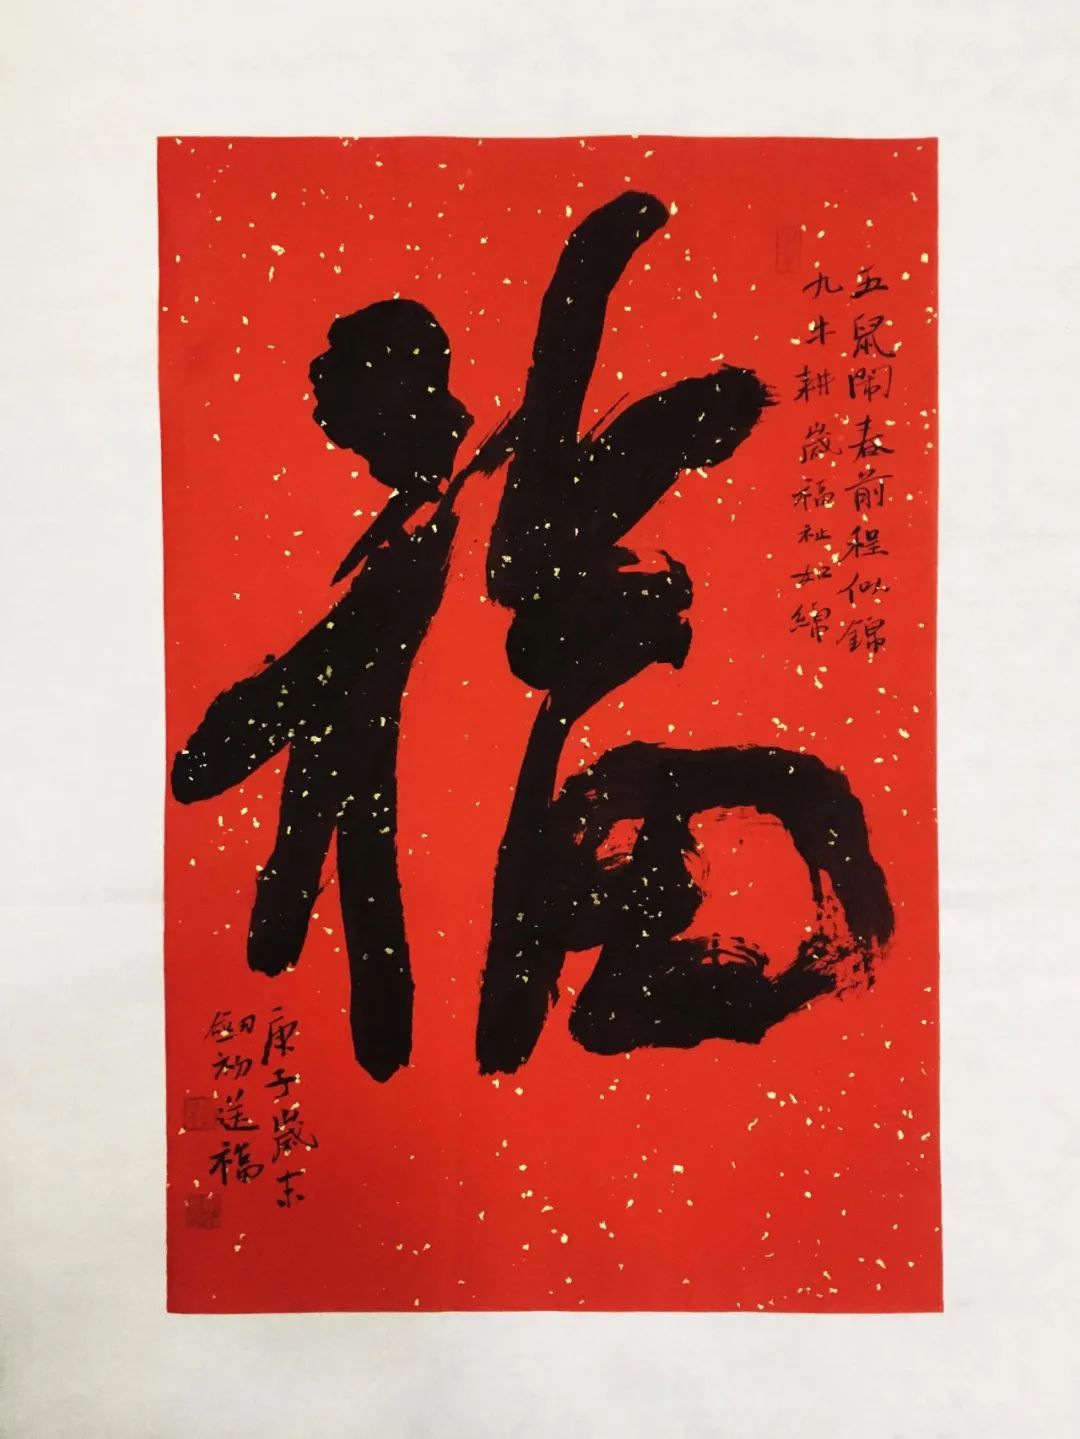 福
五鼠闹春前程似锦
九牛耕歲福祉如綿
庚子歲末
劔初送福